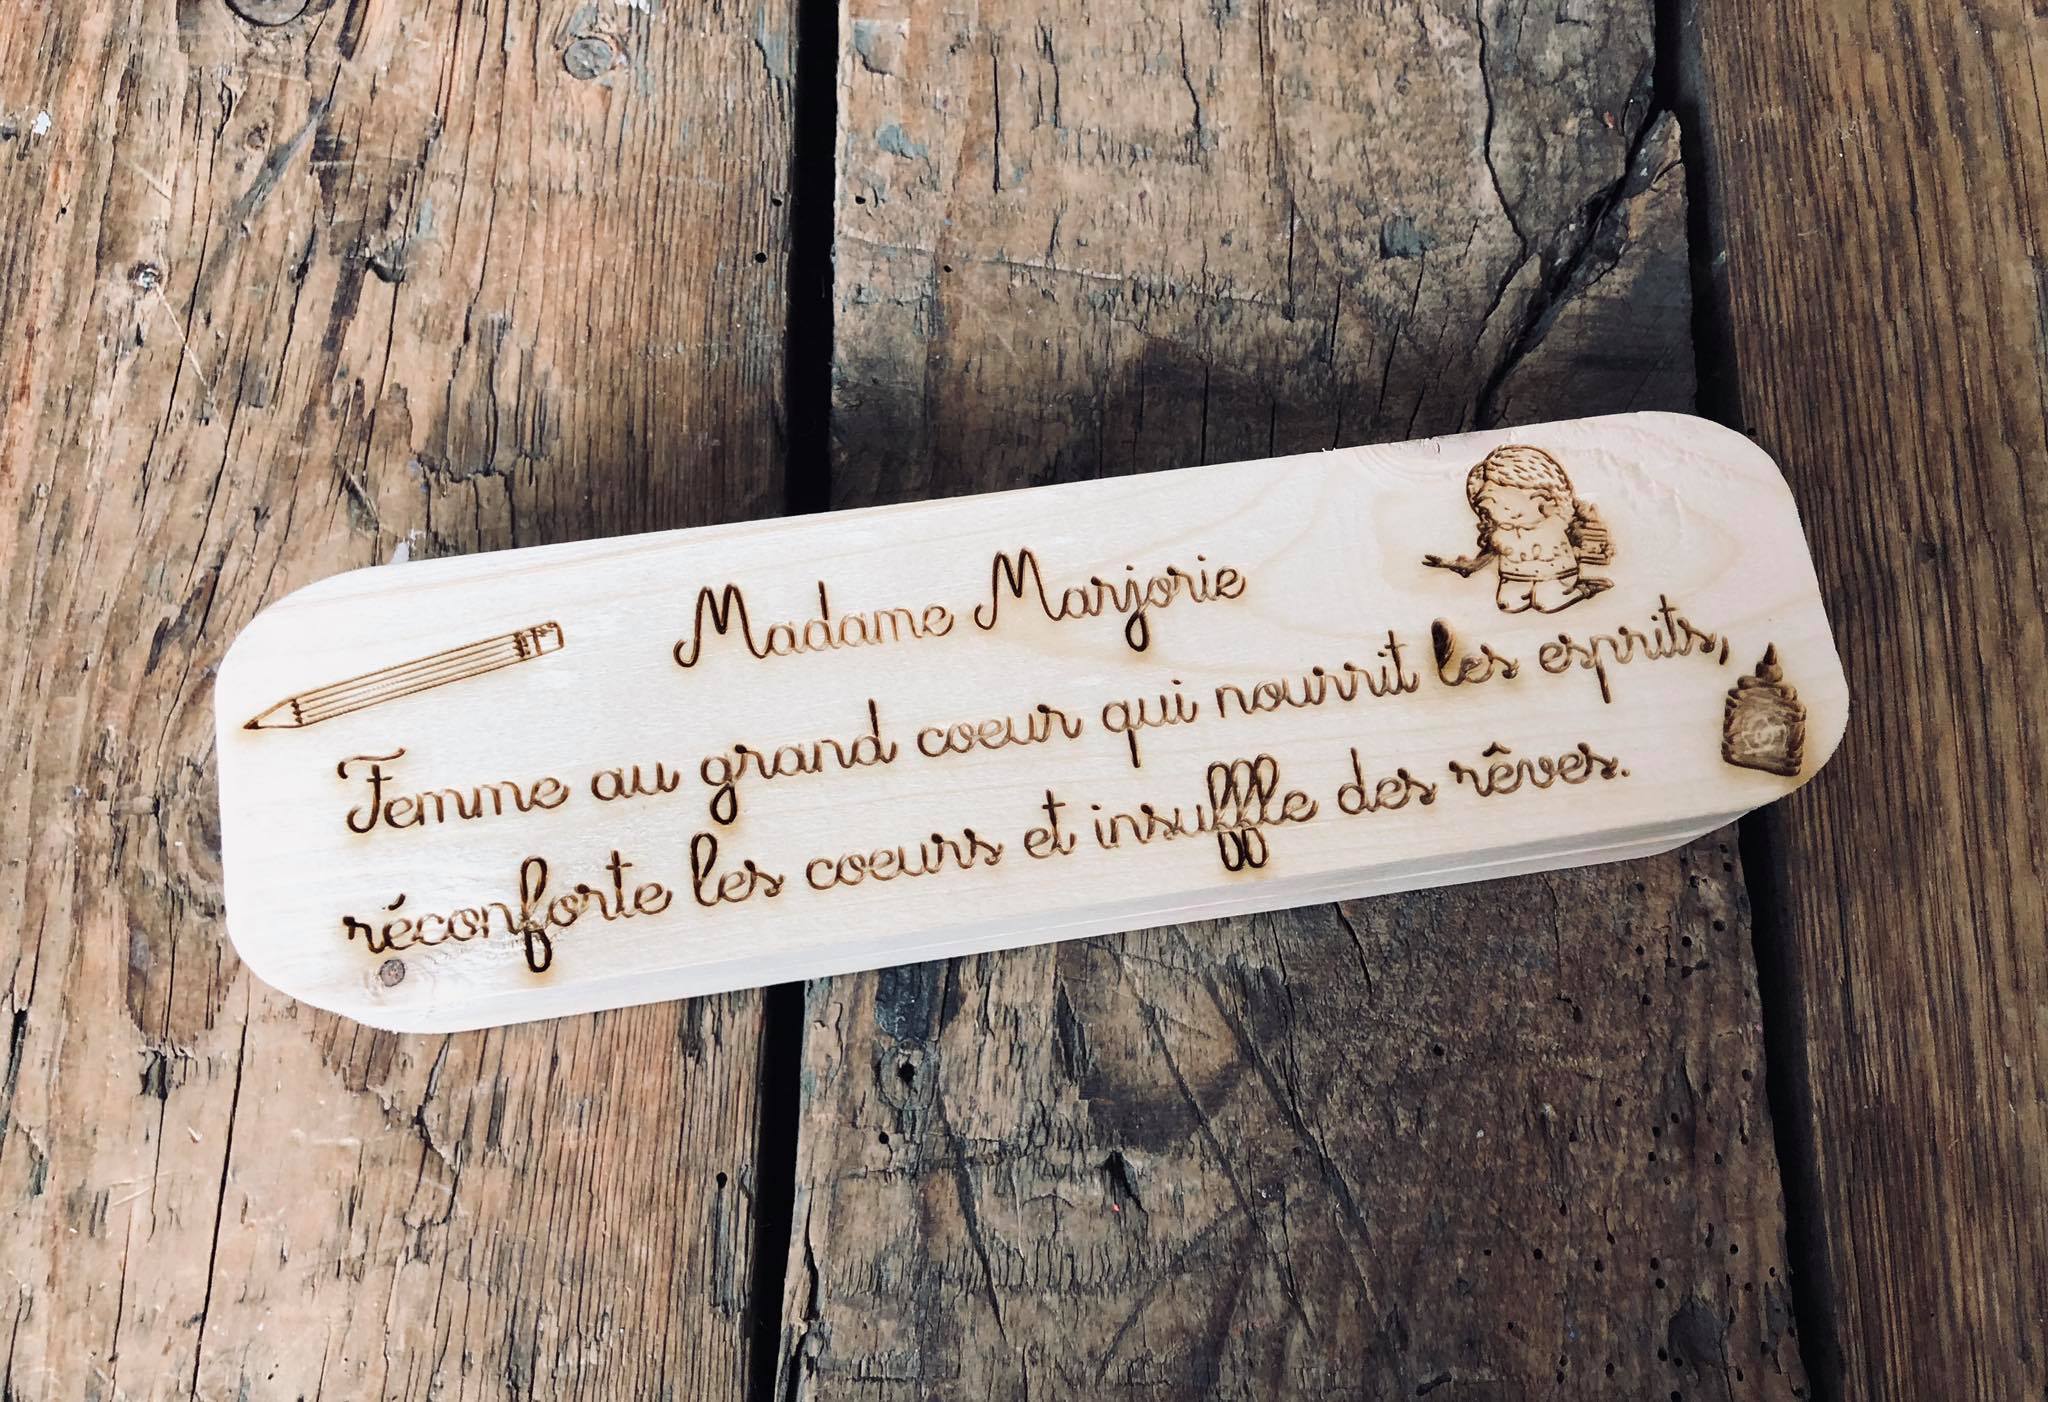 Madame Marjorie
Femme au grand coeur qui nourrit les esprits,
réconforte les coeurs et insuffle des rêves.